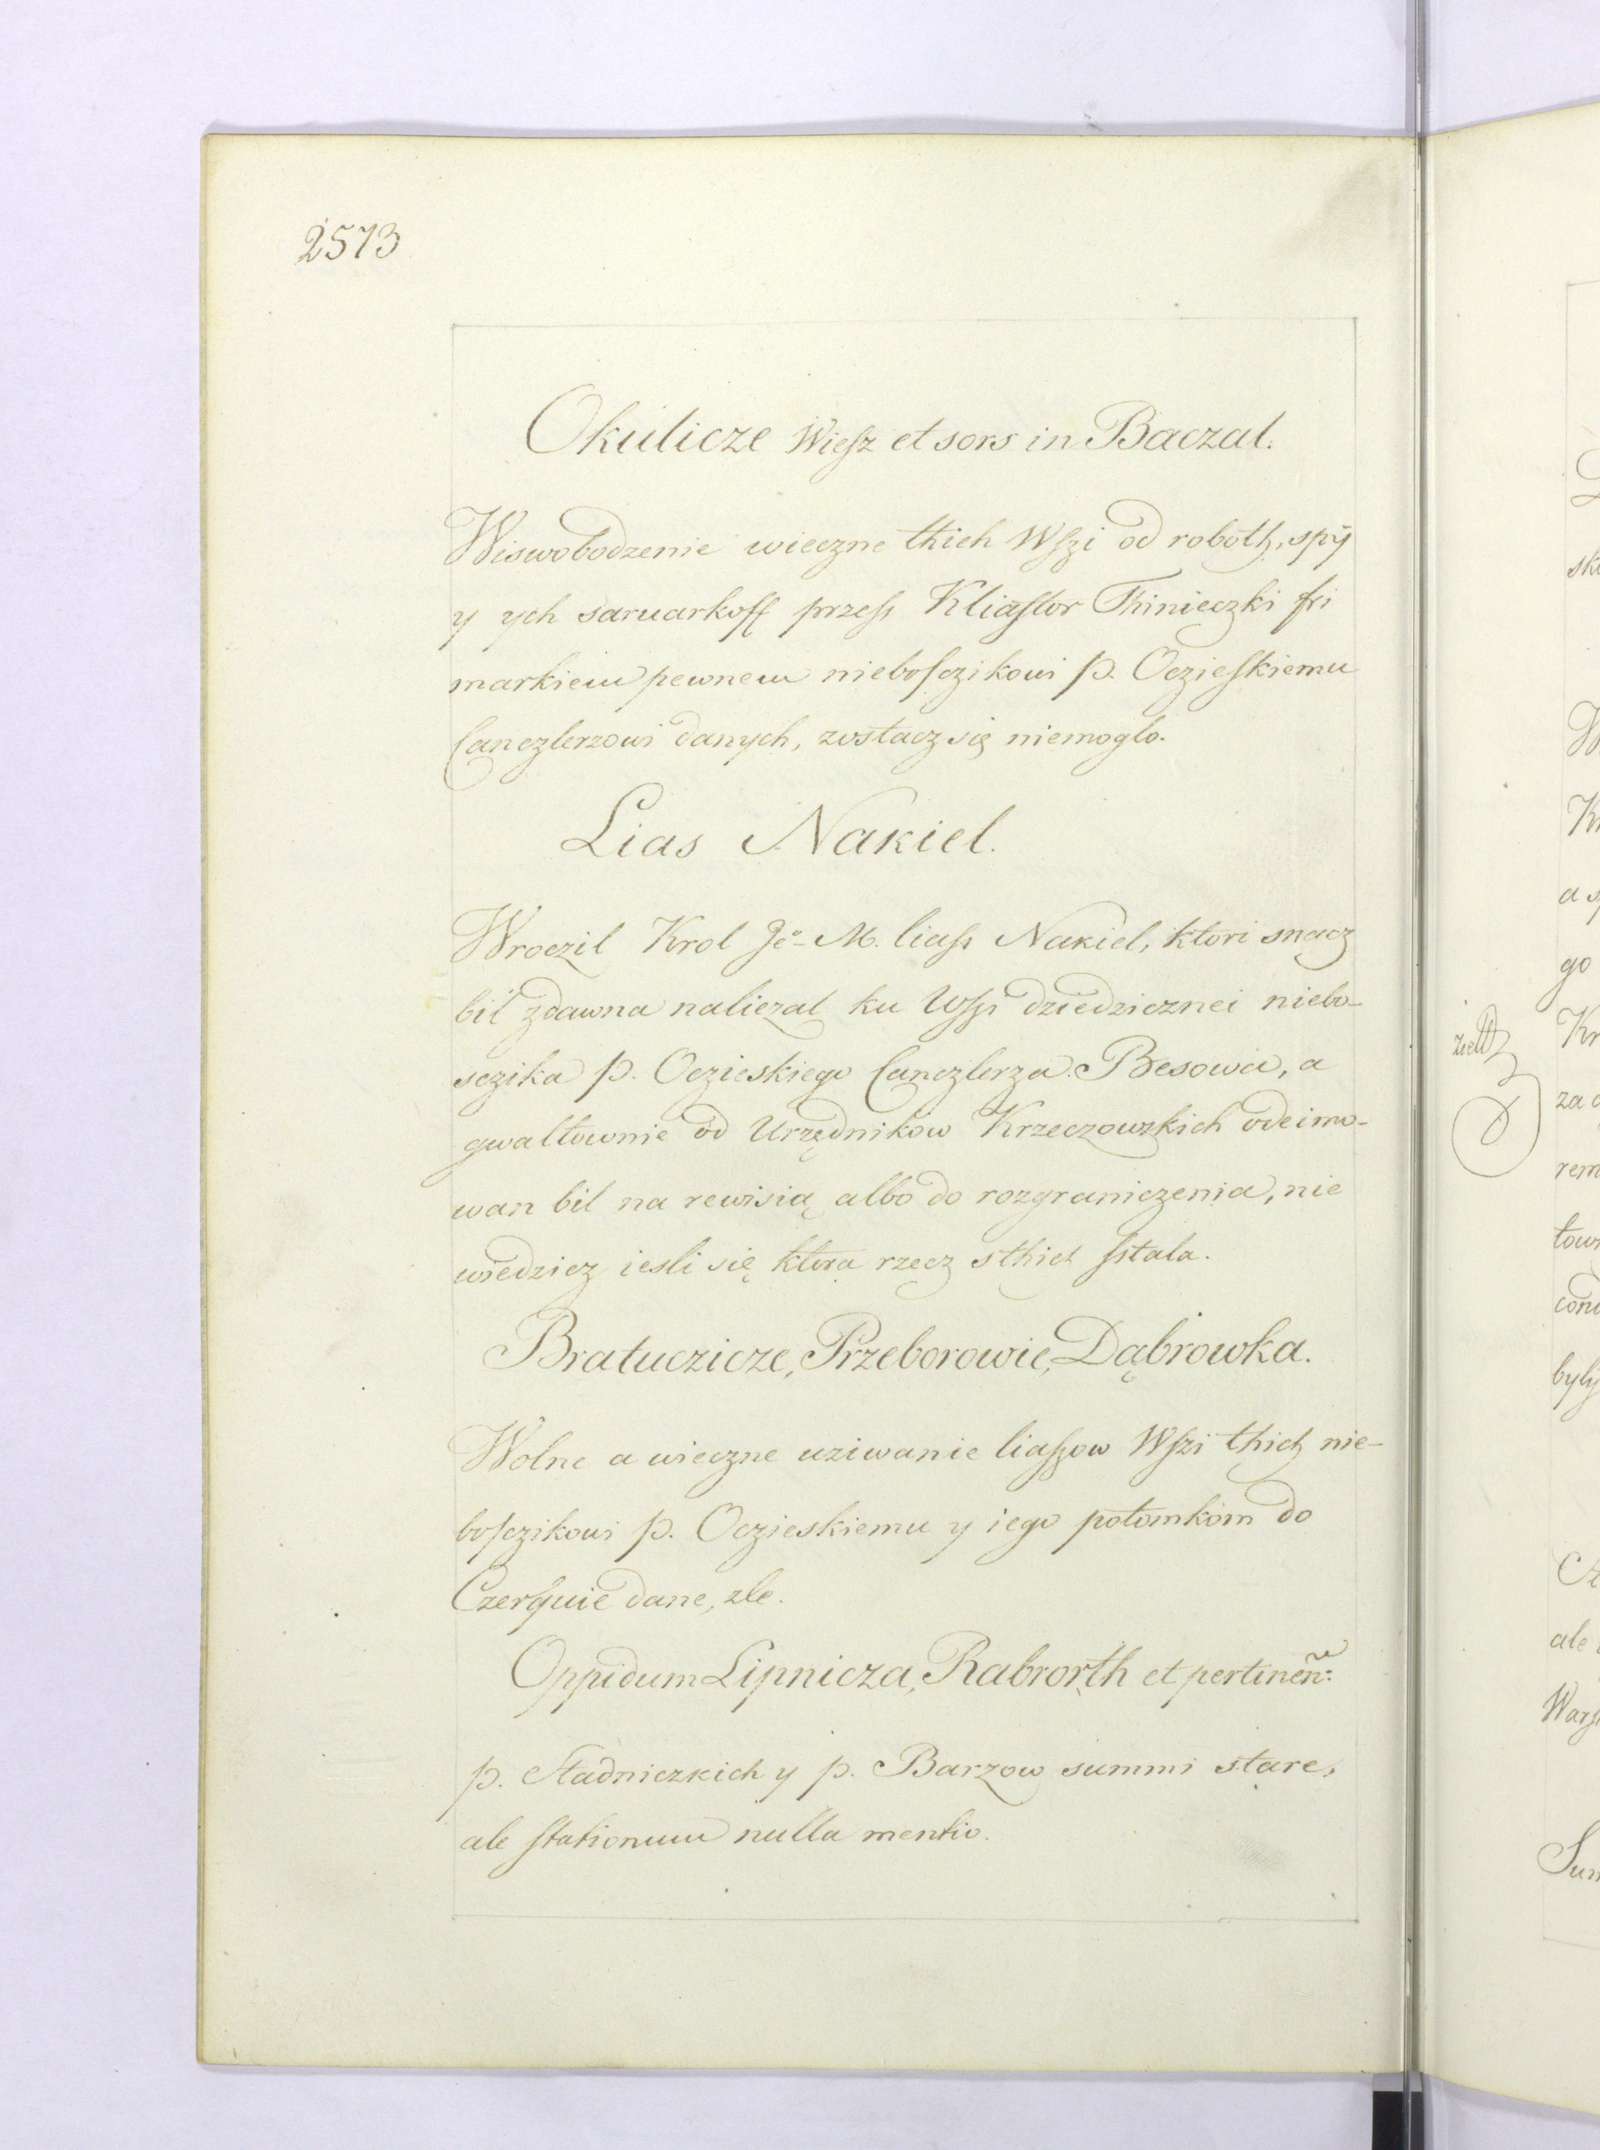 2573
Okulicze Wiesz et sors in Baczal.
Wiswobodzenie wieczne thich Wszi od roboth, spÿ
y ych saruarkoff przess Kliasztor Thinieczki fri
markiem pewnem niebosczikowi p. Oczieskiemu
Canczlerzowi danych, zostacz się niemoglo.
Lias Nakiel.
Wroczil Krol Je͠o M. liass Nakiel, ktori snacz
bil zdawna naliczal ku Wszi dziedzicznei niebo-
sczika p. Oczieskiego Canczlerza Besowia, a
gwaltownie od Urzędnikow Krzeczowzkich odeimo-
wan bil na rewisią albo do rozgraniczenia, nie
wiedzicz iesli się ktora rzecz sthich sstala.
Bratuczicze, Przeborowie, Dąbrowka.
Wolne a wieczne uziwanie liaszow Wszi thich nie-
bosczikowi p. Oczieskiemu y iego potomkom do
dane, zle.
Oppidum Lipnicza, Rabrorth et pertinen:
p. Stadniczkich y p. Barzow summi stare,
ale stationum nulla mentio.